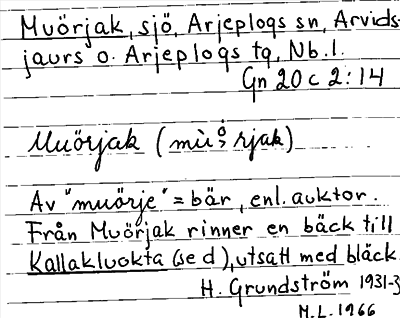 Muörjak, sjö, Arjeplogs sn, Arvids-
jaurs o. Arjeplogs tg, Nb. l.
Gn 20 c 2:14
Muörjak (mu̇̀å̯rjak)
Av "muörje" = bär, enl. auktor.
Från Muörjak rinner en bäck till
Kallakluokta (se d), utsatt med bläck.
H. Grundström 1931-3
M.L. 1966